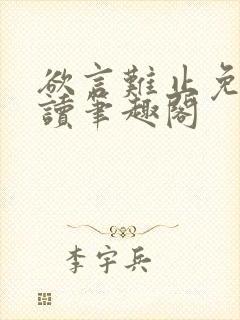 欲言難止免
讀筆趣閣
李宇兵